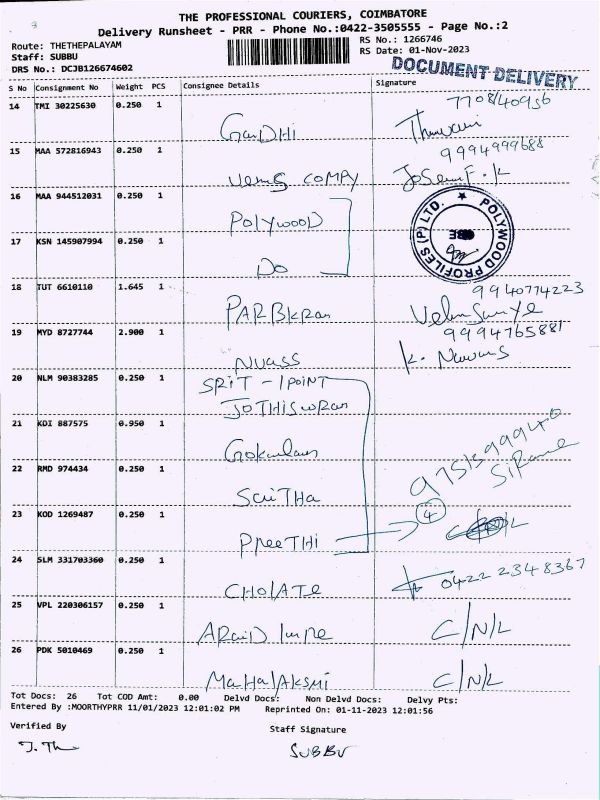 THE PROFESSIONAL COURIERS, COIMBATORE
Delivery Runsheet - PRR - Phone No.:0422-3505555 - Page No.:2
Route: THETHEPALAYAM
RS No.: 1266746
Staff: SUBBU
RS Date: 01-Nov-2023
DRS No.: DCJB126674602
DOCUMENT DELIVERY
S No Consignment No Weight PCS Consignee Details Signature
14 TMI 30225630 0.250 1
GanDHI 7708140956
15 MAA 572816943 0.250 1
9994999688
COMPY Josenf.K
16 MAA 944512031 0.250 1
POLYWOOD
POLYWOOD PROFILES (P) LTD.
CBE
17 KSN 145907994 0.250 1
DO
18 TUT 6610110 1.645 1
9940774223
19 MYD 8727744 2.900 1
9994765881
NVASS K.
20 NLM 90383285 0.250 1
SPIT - 1 POINT
JOTHISWRAN
21 KOI 887575 0.950 1
Gokulan
22 RMD 974434 0.250 1
SaiTHa
23 KOD 1269487 0.250 1
PreeTHi 4
24 SLM 331703360 0.250 1
CHOlATE 0422 2348367
25 VPL 220306157 0.250 1
C/N/L
26 PDK 5010469 0.250 1
MaHalAKSMI C/N/L
Tot Docs: 26 Tot COD Amt: 0.00 Delvd Docs: Non Delvd Docs: Delvy Pts:
Entered By :MOORTHYPRR 11/01/2023 12:01:02 PM Reprinted On: 01-11-2023 12:01:56
Verified By
Staff Signature
SUBBU